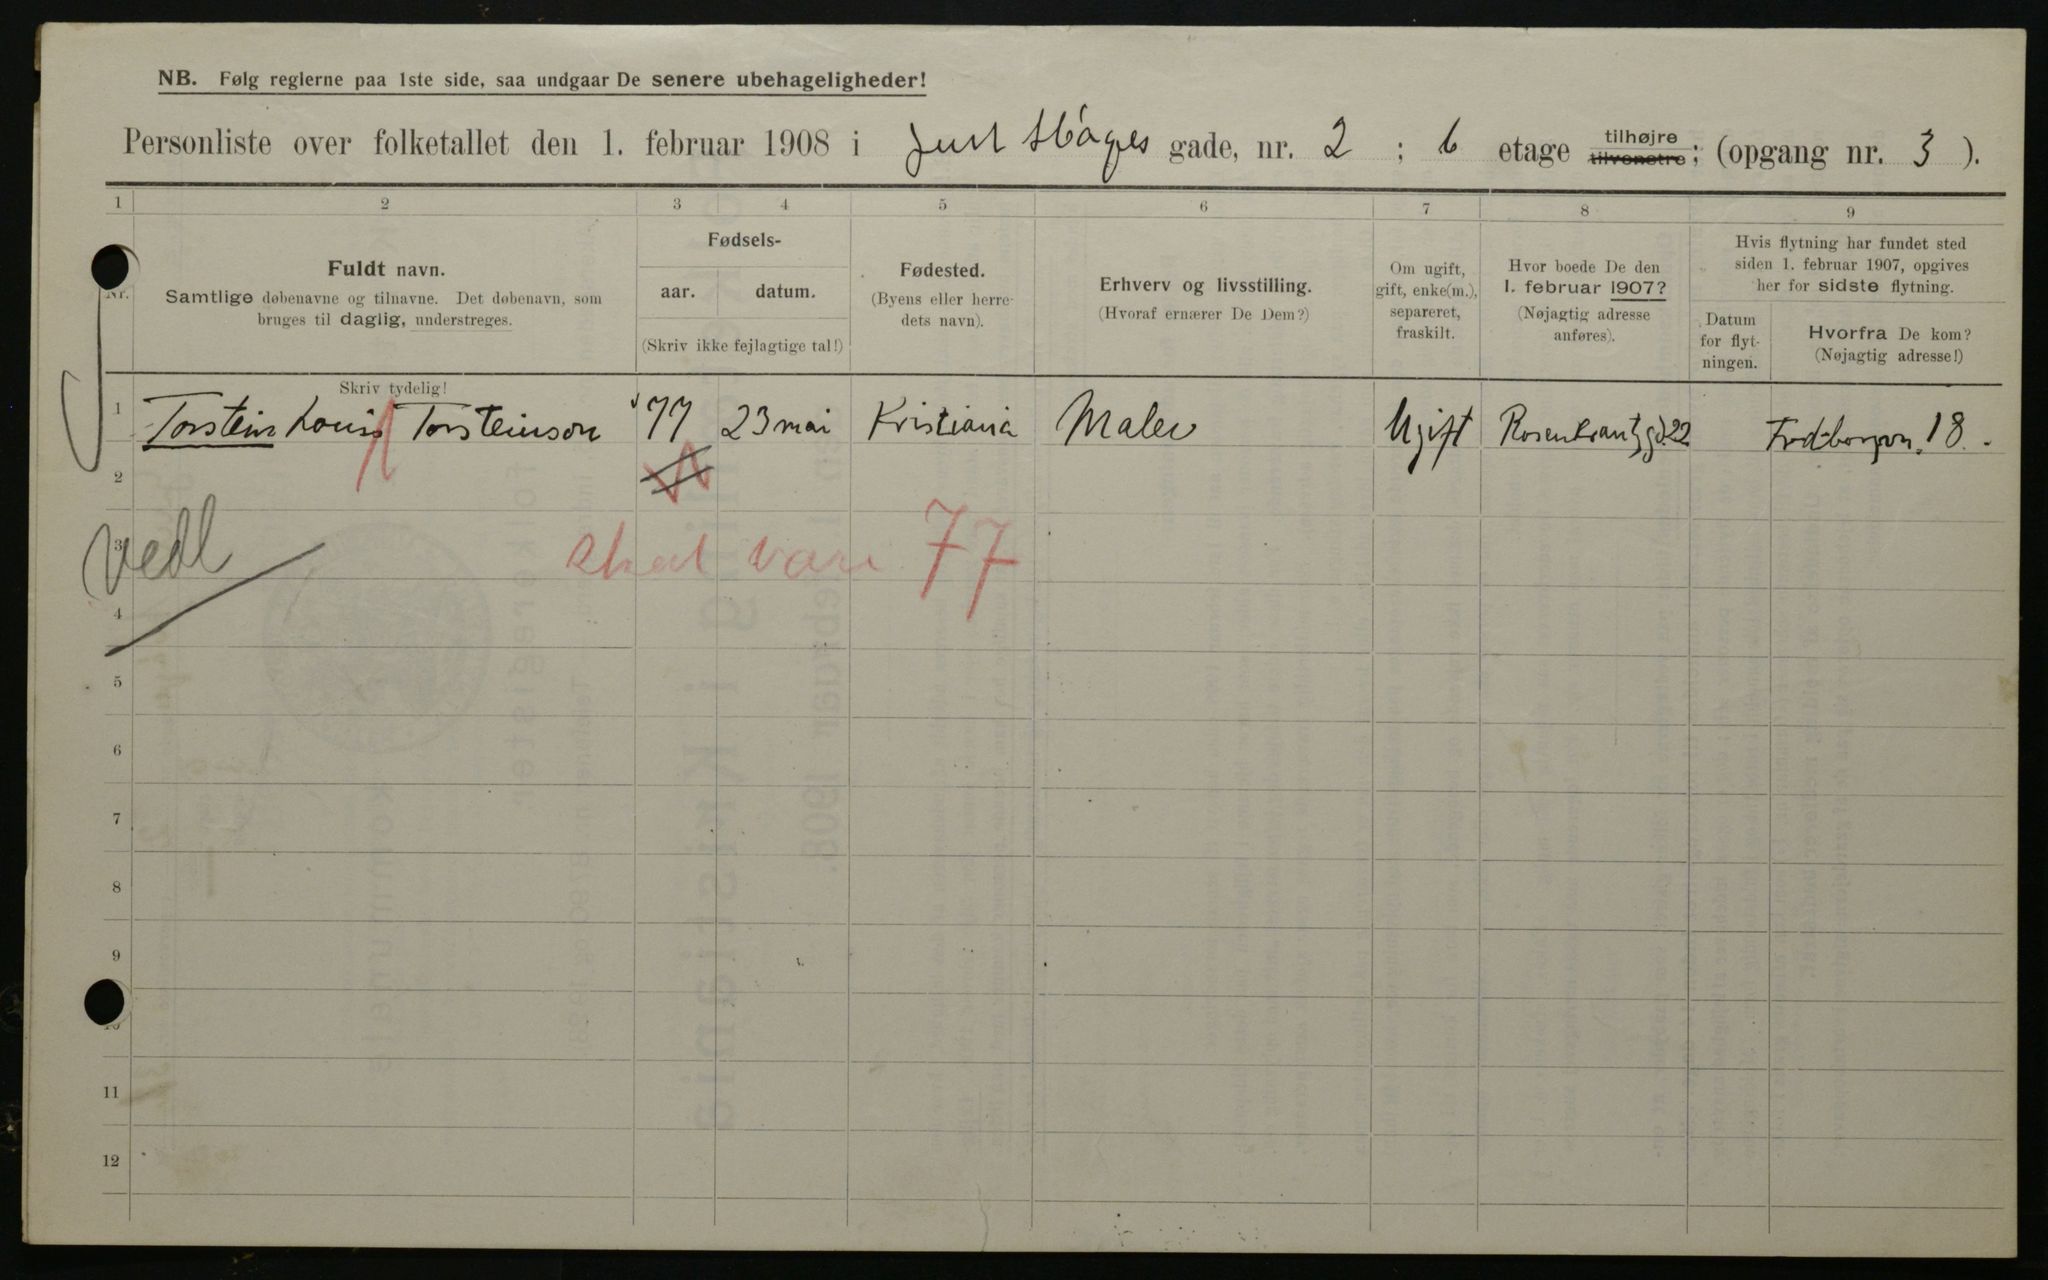 NB. Følg reglerne paa 1ste side, saa undgaar De senere ubehageligheder!
Personliste over folketallet den 1. februar 1908 i Just Høgs gade, nr. 2 ; 6 etage tilhøjre tilvenstre; (opgang nr. 3 ).
1 2 3 4 5 6 7 8 9
Nr.
Fuldt navn.
Samtlige døbenavne og tilnavne. Det døbenavn, som
bruges til daglig, understreges.
Skriv tydelig!
Fødsels-
aar. datum.
(Skriv ikke fejlagtige tal!)
Fødested.
(Byens eller herre-
dets navn).
Erhverv og livsstilling.
(Hvoraf ernærer De Dem?)
Om ugift,
gift, enke(m.),
separeret,
fraskilt.
Hvor boede De den
1. februar 1907?
(Nøjagtig adresse
anføres).
Hvis flytning har fundet sted
siden 1. februar 1907, opgives
her for sidste flytning.
Datum
for flyt-
ningen.
Hvorfra De kom?
(Nøjagtig adresse!)
1 Torstein Louis Torsteinson 77 23 mai Kristiania Maler Ugift Rosenkrantzgd. 22 18.
2
3 vedl skal være 77
4
5
6
7
8
9
10
11
12